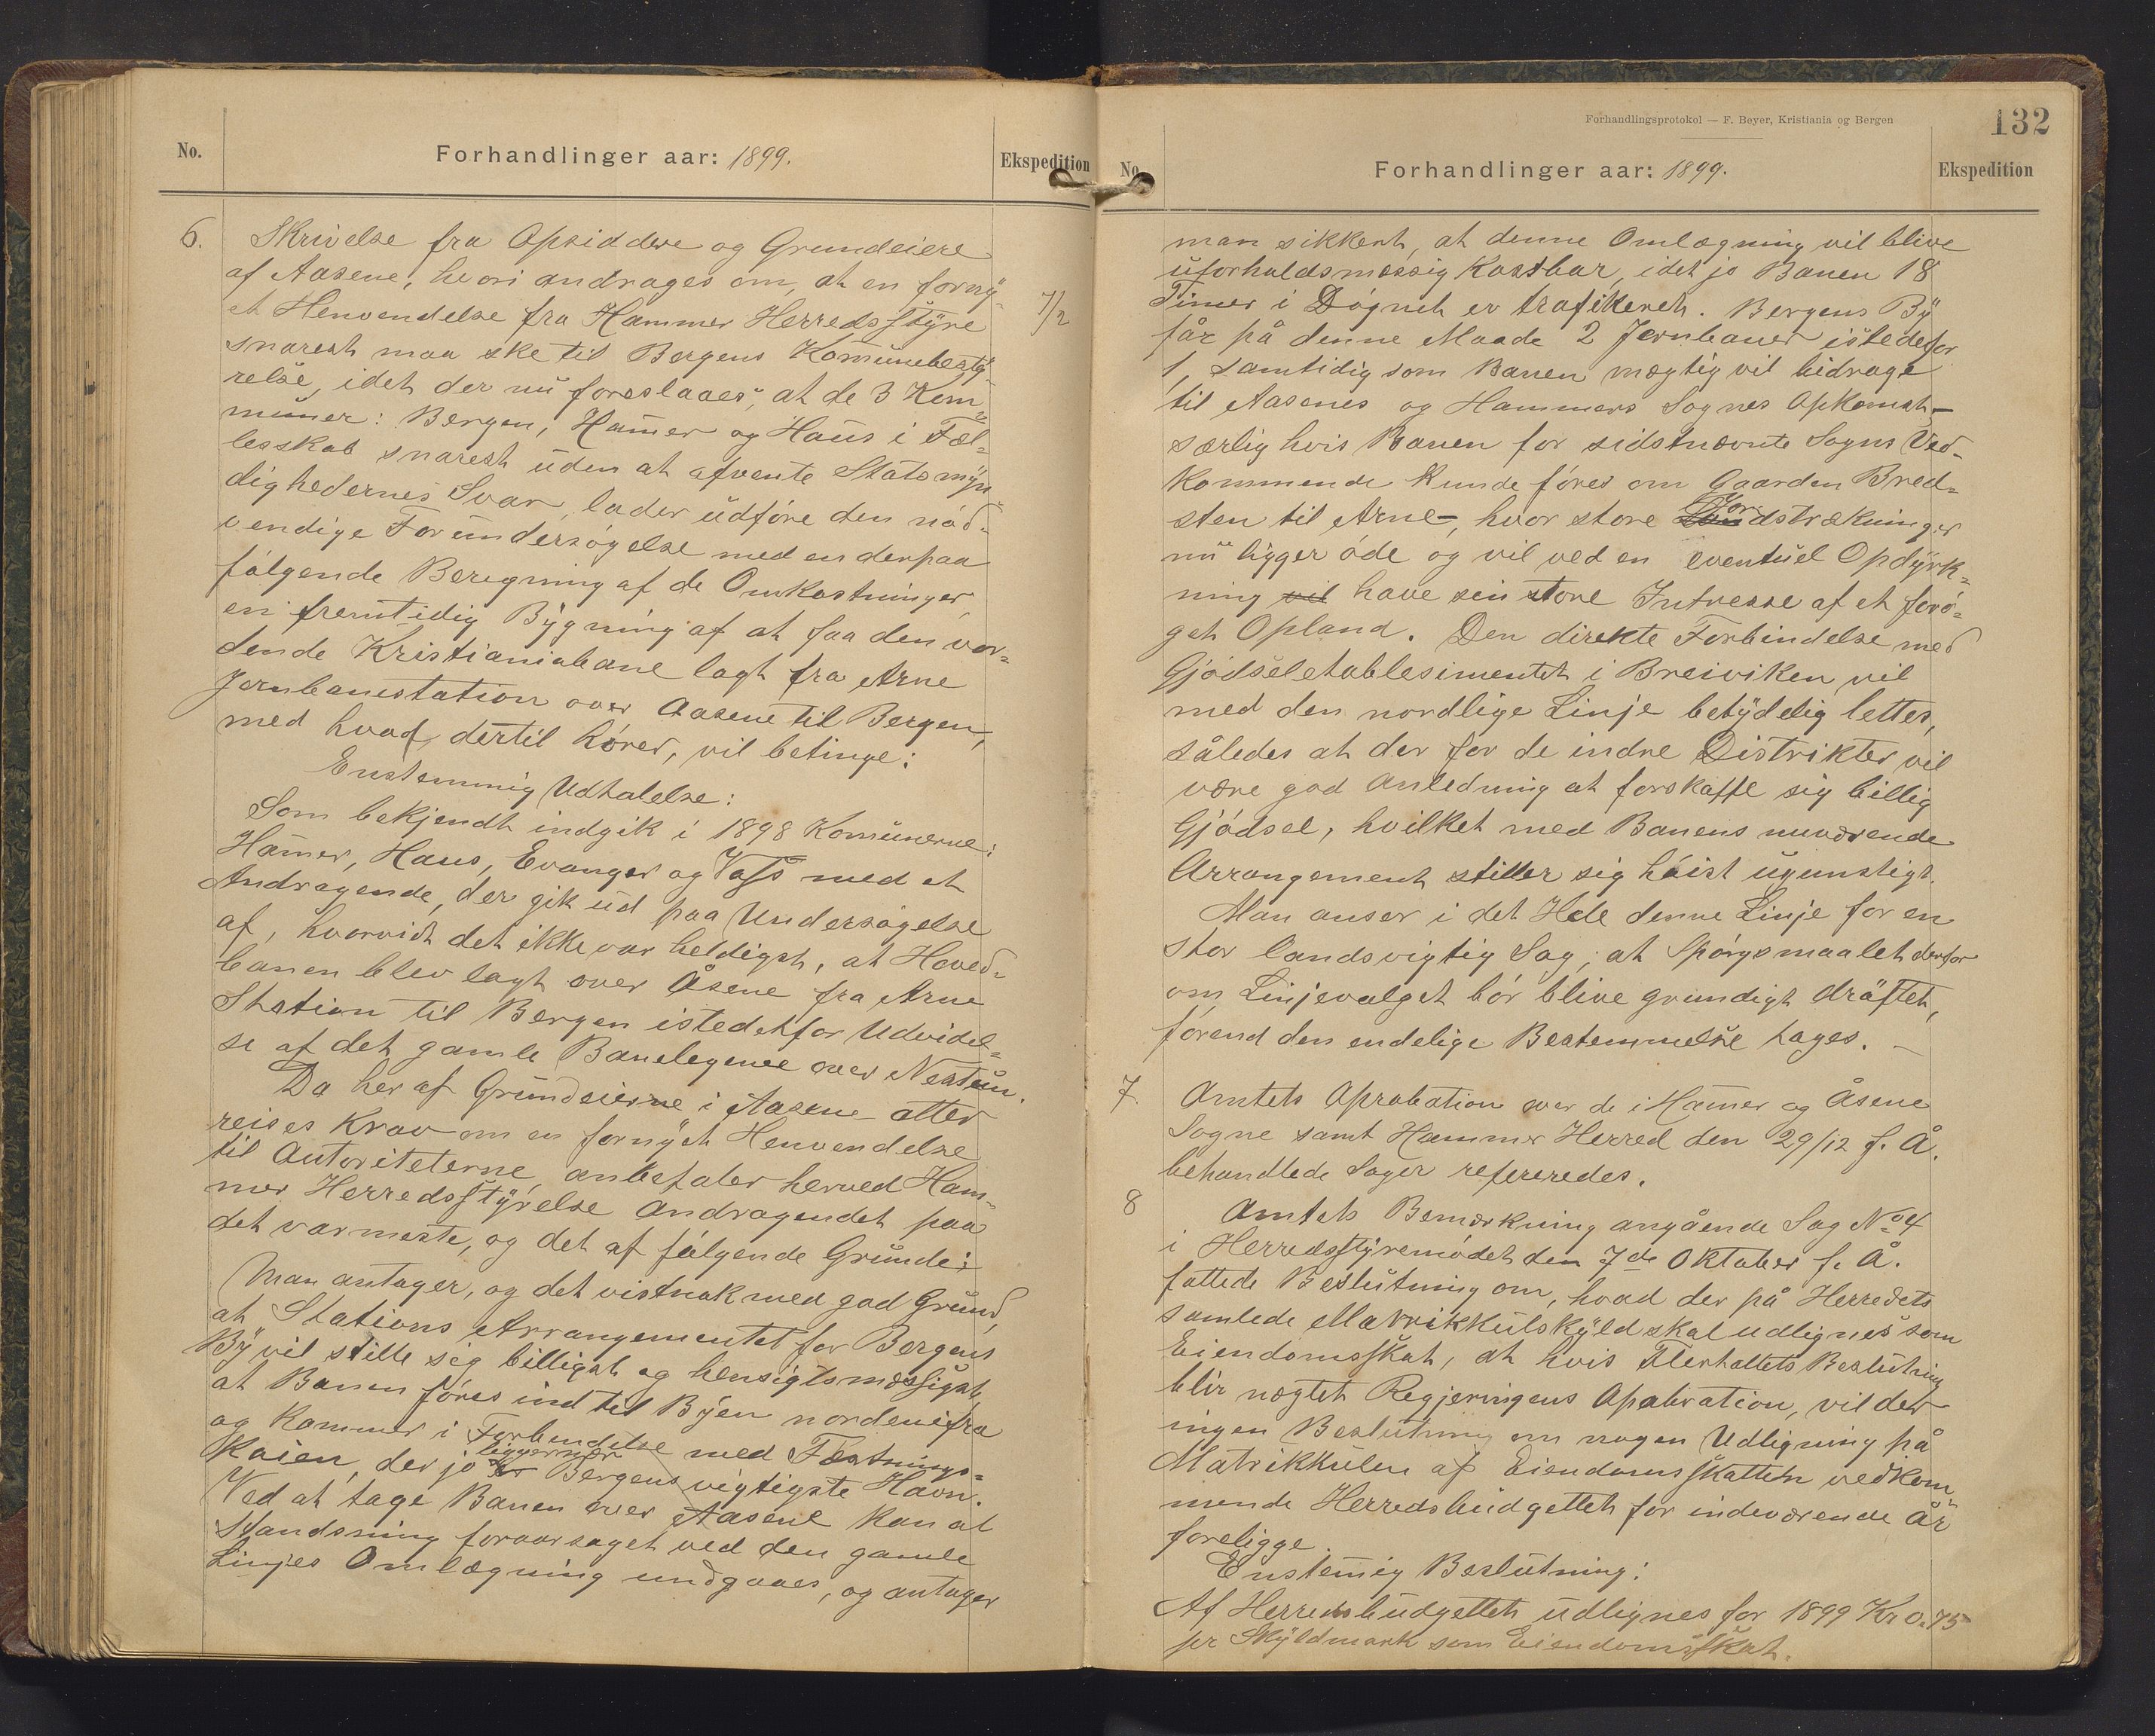 No.
Forhandlinger aar: 1899.
Ekspedition
6.
Skrivelse fra Opsiddere og Grundeiere
af Aasene, hvori andrages om, at en forny-
et Henvendelse fra Hammer Herredsstyre
7/2
snarest maa ske til Bergens Kommunebesty-
relse, idet der nu foreslaaes, at de 3 Kom-
muner: Bergen, Hamer og Haus i Fæl-
lesskab snarest uden at afvente Statsmyn
dighedernes Svar, lader udföre den nöd-
vendige Forundersögelse med en derpaa
fölgende Beregning af de Omkostninger,
en fremtidig Bygning af at faa den vor-
dende Kristianiabane lagt fra Arne
Jernbanestation over Aasene til Bergen,
med hvad dertil hörer, vil betinge:
Enstemmig Udtalelse:
Som bekjendt indgik i 1898 Komunerne:
Hamer, Haus, Evanger og Voss med et
Andragende, der gik ud paa Undersögelse
af, hvorvidt det ikke var heldigst, at Hoved-
banen blev lagt over Åsene fra Arne
Station til Bergen istedetfor Udvidel-
se af det gamle Banelegeme over Nestun.
Da her af Grundeierne i Aasene atter
reises Krav om en fornyet Henvendelse
til Autoriteterne, anbefaler herved Ham-
mer Herredsstyrelse Andragendet paa
det varmeste, og det af fölgende Grunde:
Man antager, og det vistnok med god Grund,
at Stations Arrangementet for Bergens
By vil stille sig billigst og hensigtsmæssigst
at Banen föres ind til Byen nordenifra
og kommer i Forbindelse med Fæstnings-
liggernær
Kaien, der jo er Bergens vigtigste Havn.
Ved at tage Banen over Aasene kan al
Standsning foraarsaget ved den gamle
Linjes Omlægning undgaaes, og antager
Forhandlingsprotokol — F. Beyer, Kristiania og Bergen
132
No.
Forhandlinger aar: 1899.
Ekspedition
man sikkert, at denne Omlægning vil blive
uforholdsmæssig kostbar, idet jo Banen 18
Timer i Dögnet er trafikeret. Bergens By
får på denne Maade 2 Jernbaner istedefor
1, samtidig som Banen mægtig vil bidrage
til Aasenes og Hammers Sognes Opkomst -
særlig hvis Banen for sidstnævnte Sogns Ved-
kommende kunde föres om Gaarden Bred-
sten til Arne -, hvor store Jordstrækninger
nu ligger öde og vil ved en eventuel Opdyrk-
ning vil have sin store Intresse af et forö-
get Opland. Den direkte Forbindelse med
Gjödseletablesimentet i Breiviken vil
med den nordlige Linje betydelig lettes,
således at der for de indre Distrikter vil
være god Anledning at forskaffe sig billig
Gjödsel, hvilket med Banens nuværende
Arrangement stiller sig höist ugunstigt.
Man anser i det Hele denne Linje for en
stor landsvigtig Sag, at Spörgsmaalet derfor
om Linjevalget bör blive grundigt dröftet,
förend den endelige Bestemmelse tages. -
7.
Amtets Aprobation over de i Hamer og Åsene
Sogne samt Hammer Herred den 29/12 f. Å.
behandlede Sager refereredes.
8
Amtets Bemærkning angående Sag No 4
i Herredsstyremödet den 7de Oktober f. Å.
fattede Beslutning om, hvad der på Herredets
samlede Matrikkulskyld skal udlignes som
Eiendomsskat, at hvis Flertallets Beslutning
blir nægtet Regjeringens Apabration, vil der
ingen Beslutning om nogen Udligning på
Matrikkulen af Eiendomsskatten vedkom-
mende Herredsbudgettet for indeværende År
foreligge.
Enstemig Beslutning:
Af Herredsbudgettet udlignes for 1899 Kr 0.75
pr Skyldmark som Eiendomsskat.